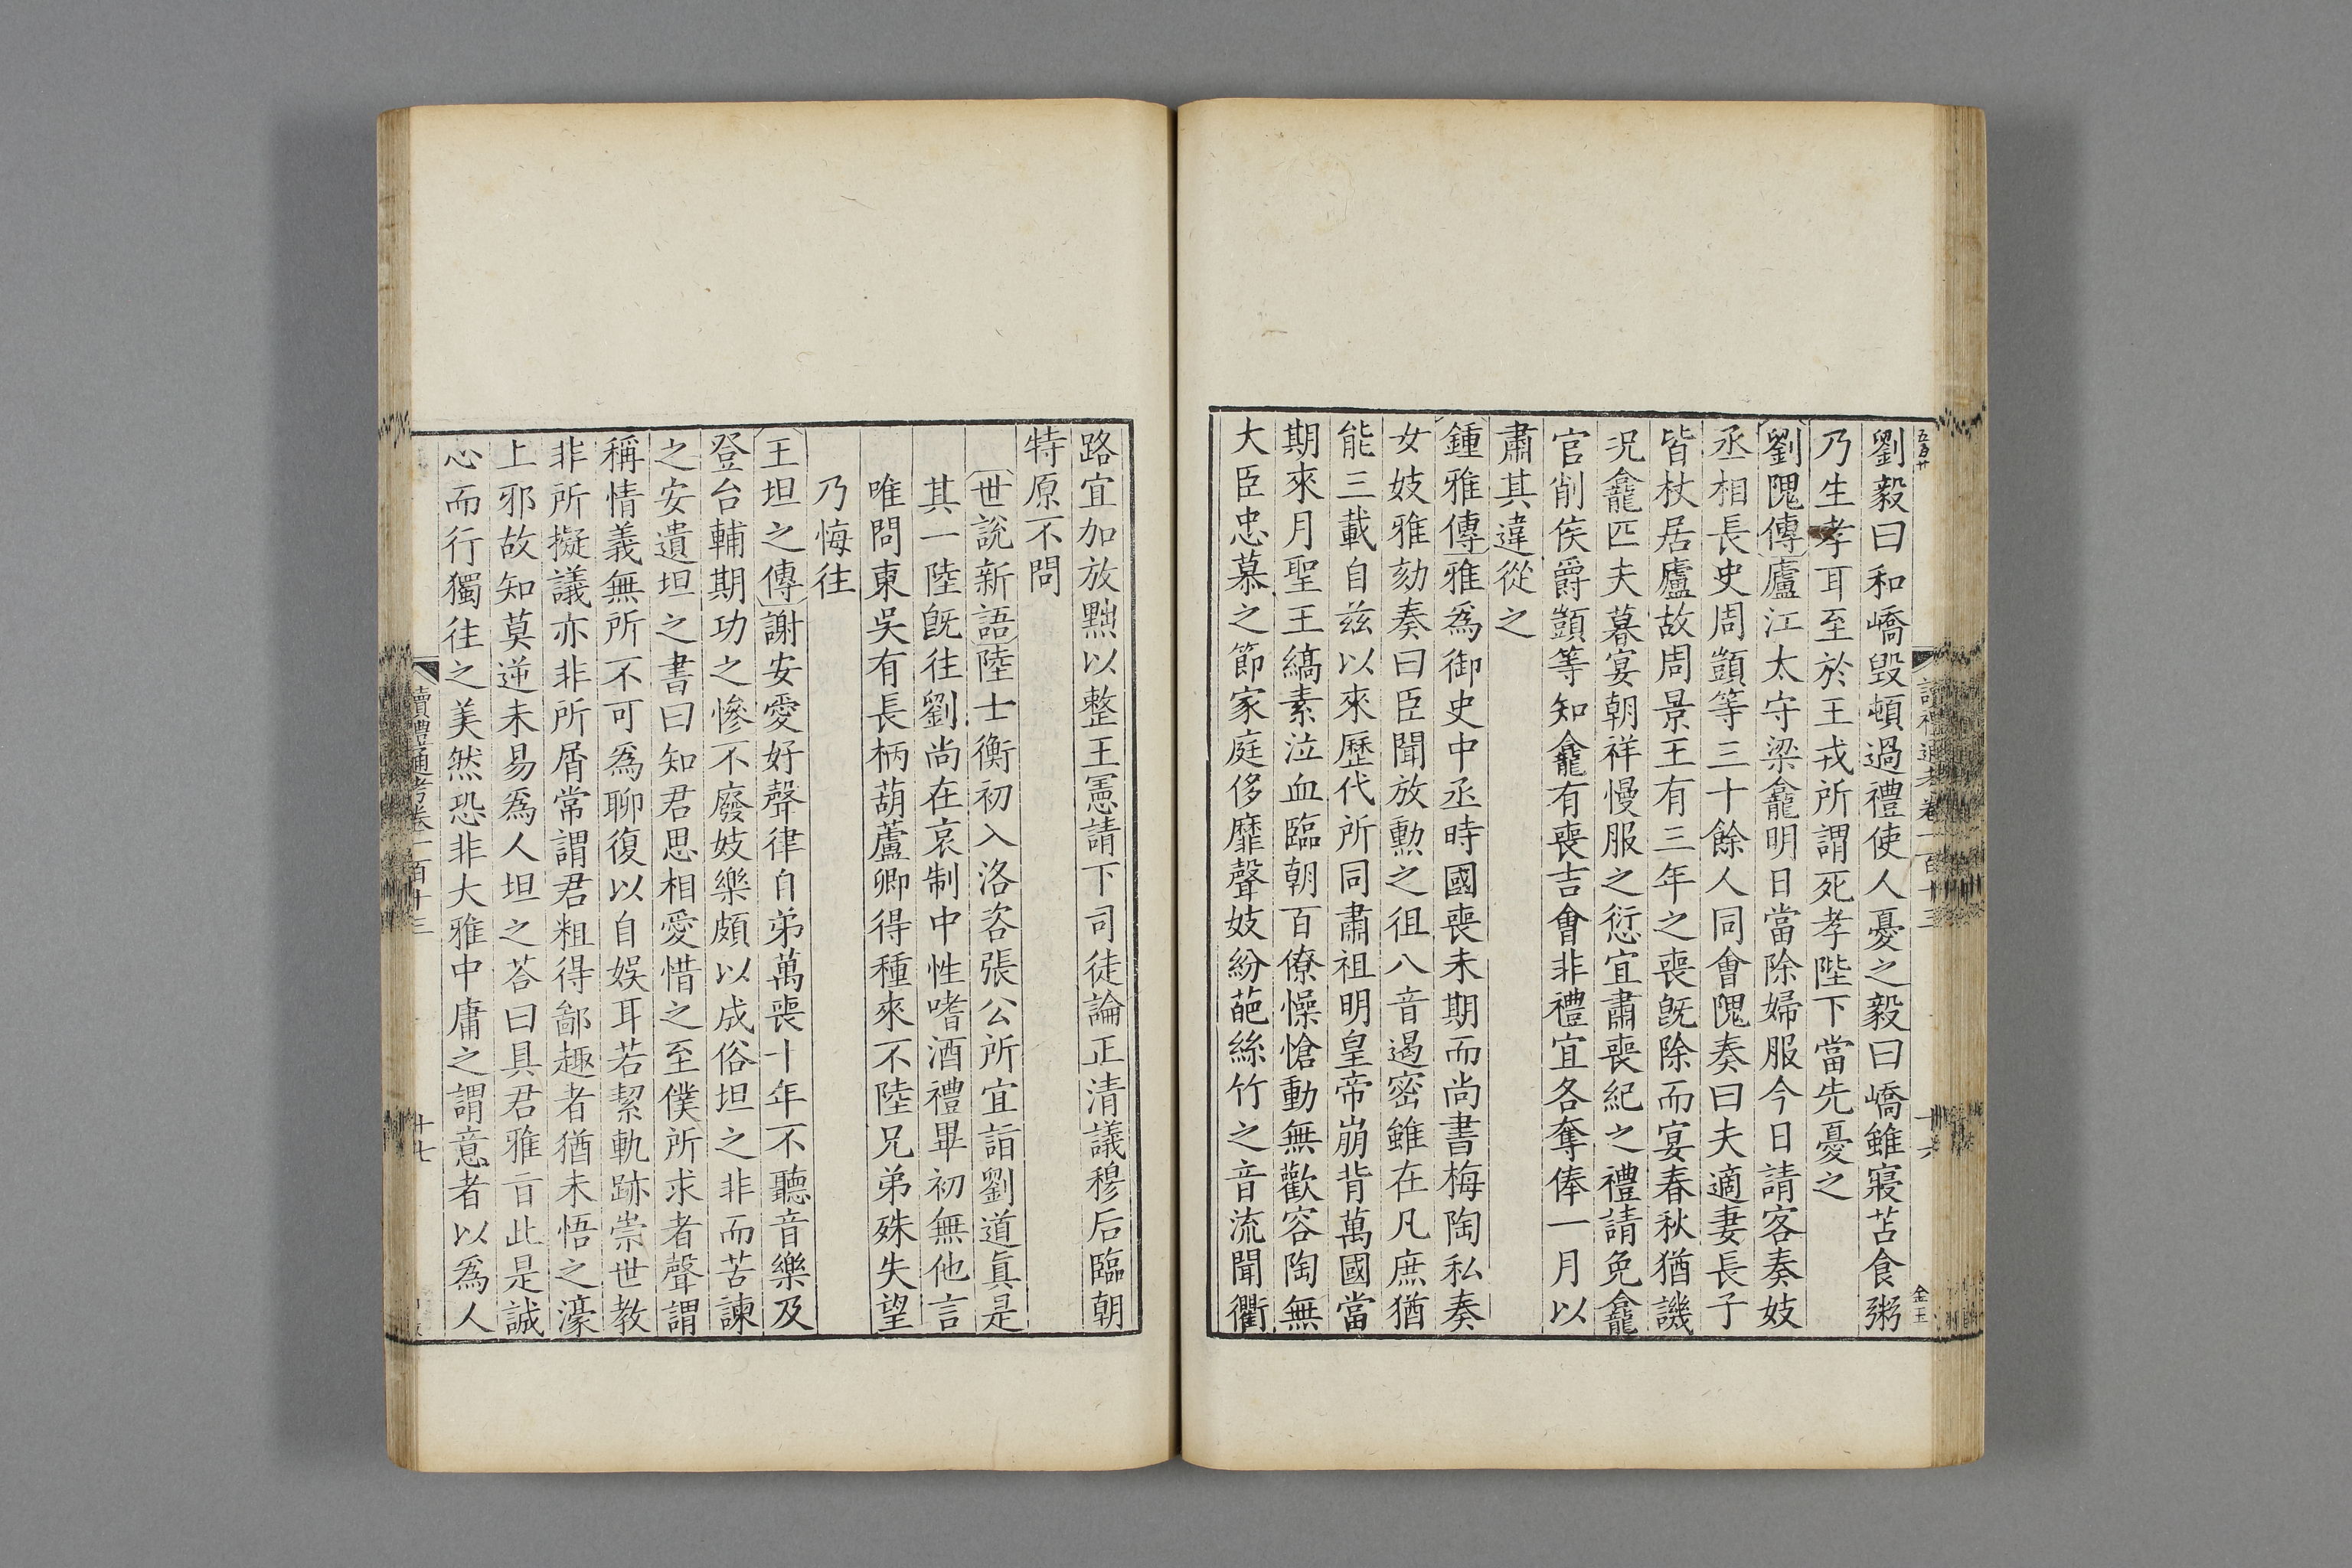 五百廿
讀禮通考卷一百十三
十六
金玉
劉毅曰和嶠毀頓過禮使人憂之毅曰嶠雖寢苫食粥
乃生孝耳至於王戎所謂死孝陛下當先憂之
劉隗傳廬江太守梁龕明日當除婦服今日請客奏妓
丞相長史周顗等三十餘人同會隗奏曰夫適妻長子
皆杖居廬故周景王有三年之喪旣除而宴春秋猶譏
況龕匹夫暮宴朝祥慢服之愆宜肅喪紀之禮請免龕
官削侯爵顗等知龕有喪吉會非禮宜各奪俸一月以
肅其違從之
鍾雅傳雅爲御史中丞時國喪未期而尚書梅陶私奏
女妓雅劾奏曰臣聞放勳之徂八音遏密雖在凡庶猶
能三載自兹以來歷代所同肅祖明皇帝崩背萬國當
期來月聖王縞素泣血臨朝百僚慘愴動無歡容陶無
大臣忠慕之節家庭侈靡聲妓紛葩絲竹之音流聞衢
路宜加放黜以整王憲請下司徒論正清議穆后臨朝
特原不問
世說新語陸士衡初入洛咨張公所宜詣劉道眞是
其一陸旣往劉尚在哀制中性嗜酒禮畢初無他言
唯問東吳有長柄葫蘆卿得種來不陸兄弟殊失望
乃悔往
王坦之傳謝安愛好聲律自弟萬喪十年不聽音樂及
登台輔期功之慘不廢妓樂頗以成俗坦之非而苦諫
之安遺坦之書曰知君思相愛惜之至僕所求者聲謂
稱情義無所不可爲聊復以自娛耳若絜軌跡崇世教
非所擬議亦非所屑常謂君粗得鄙趣者猶未悟之濠
上邪故知莫逆未易爲人坦之荅曰具君雅旨此是誠
心而行獨往之美然恐非大雅中庸之謂意者以爲人
讀禮通考卷一百十三
十七